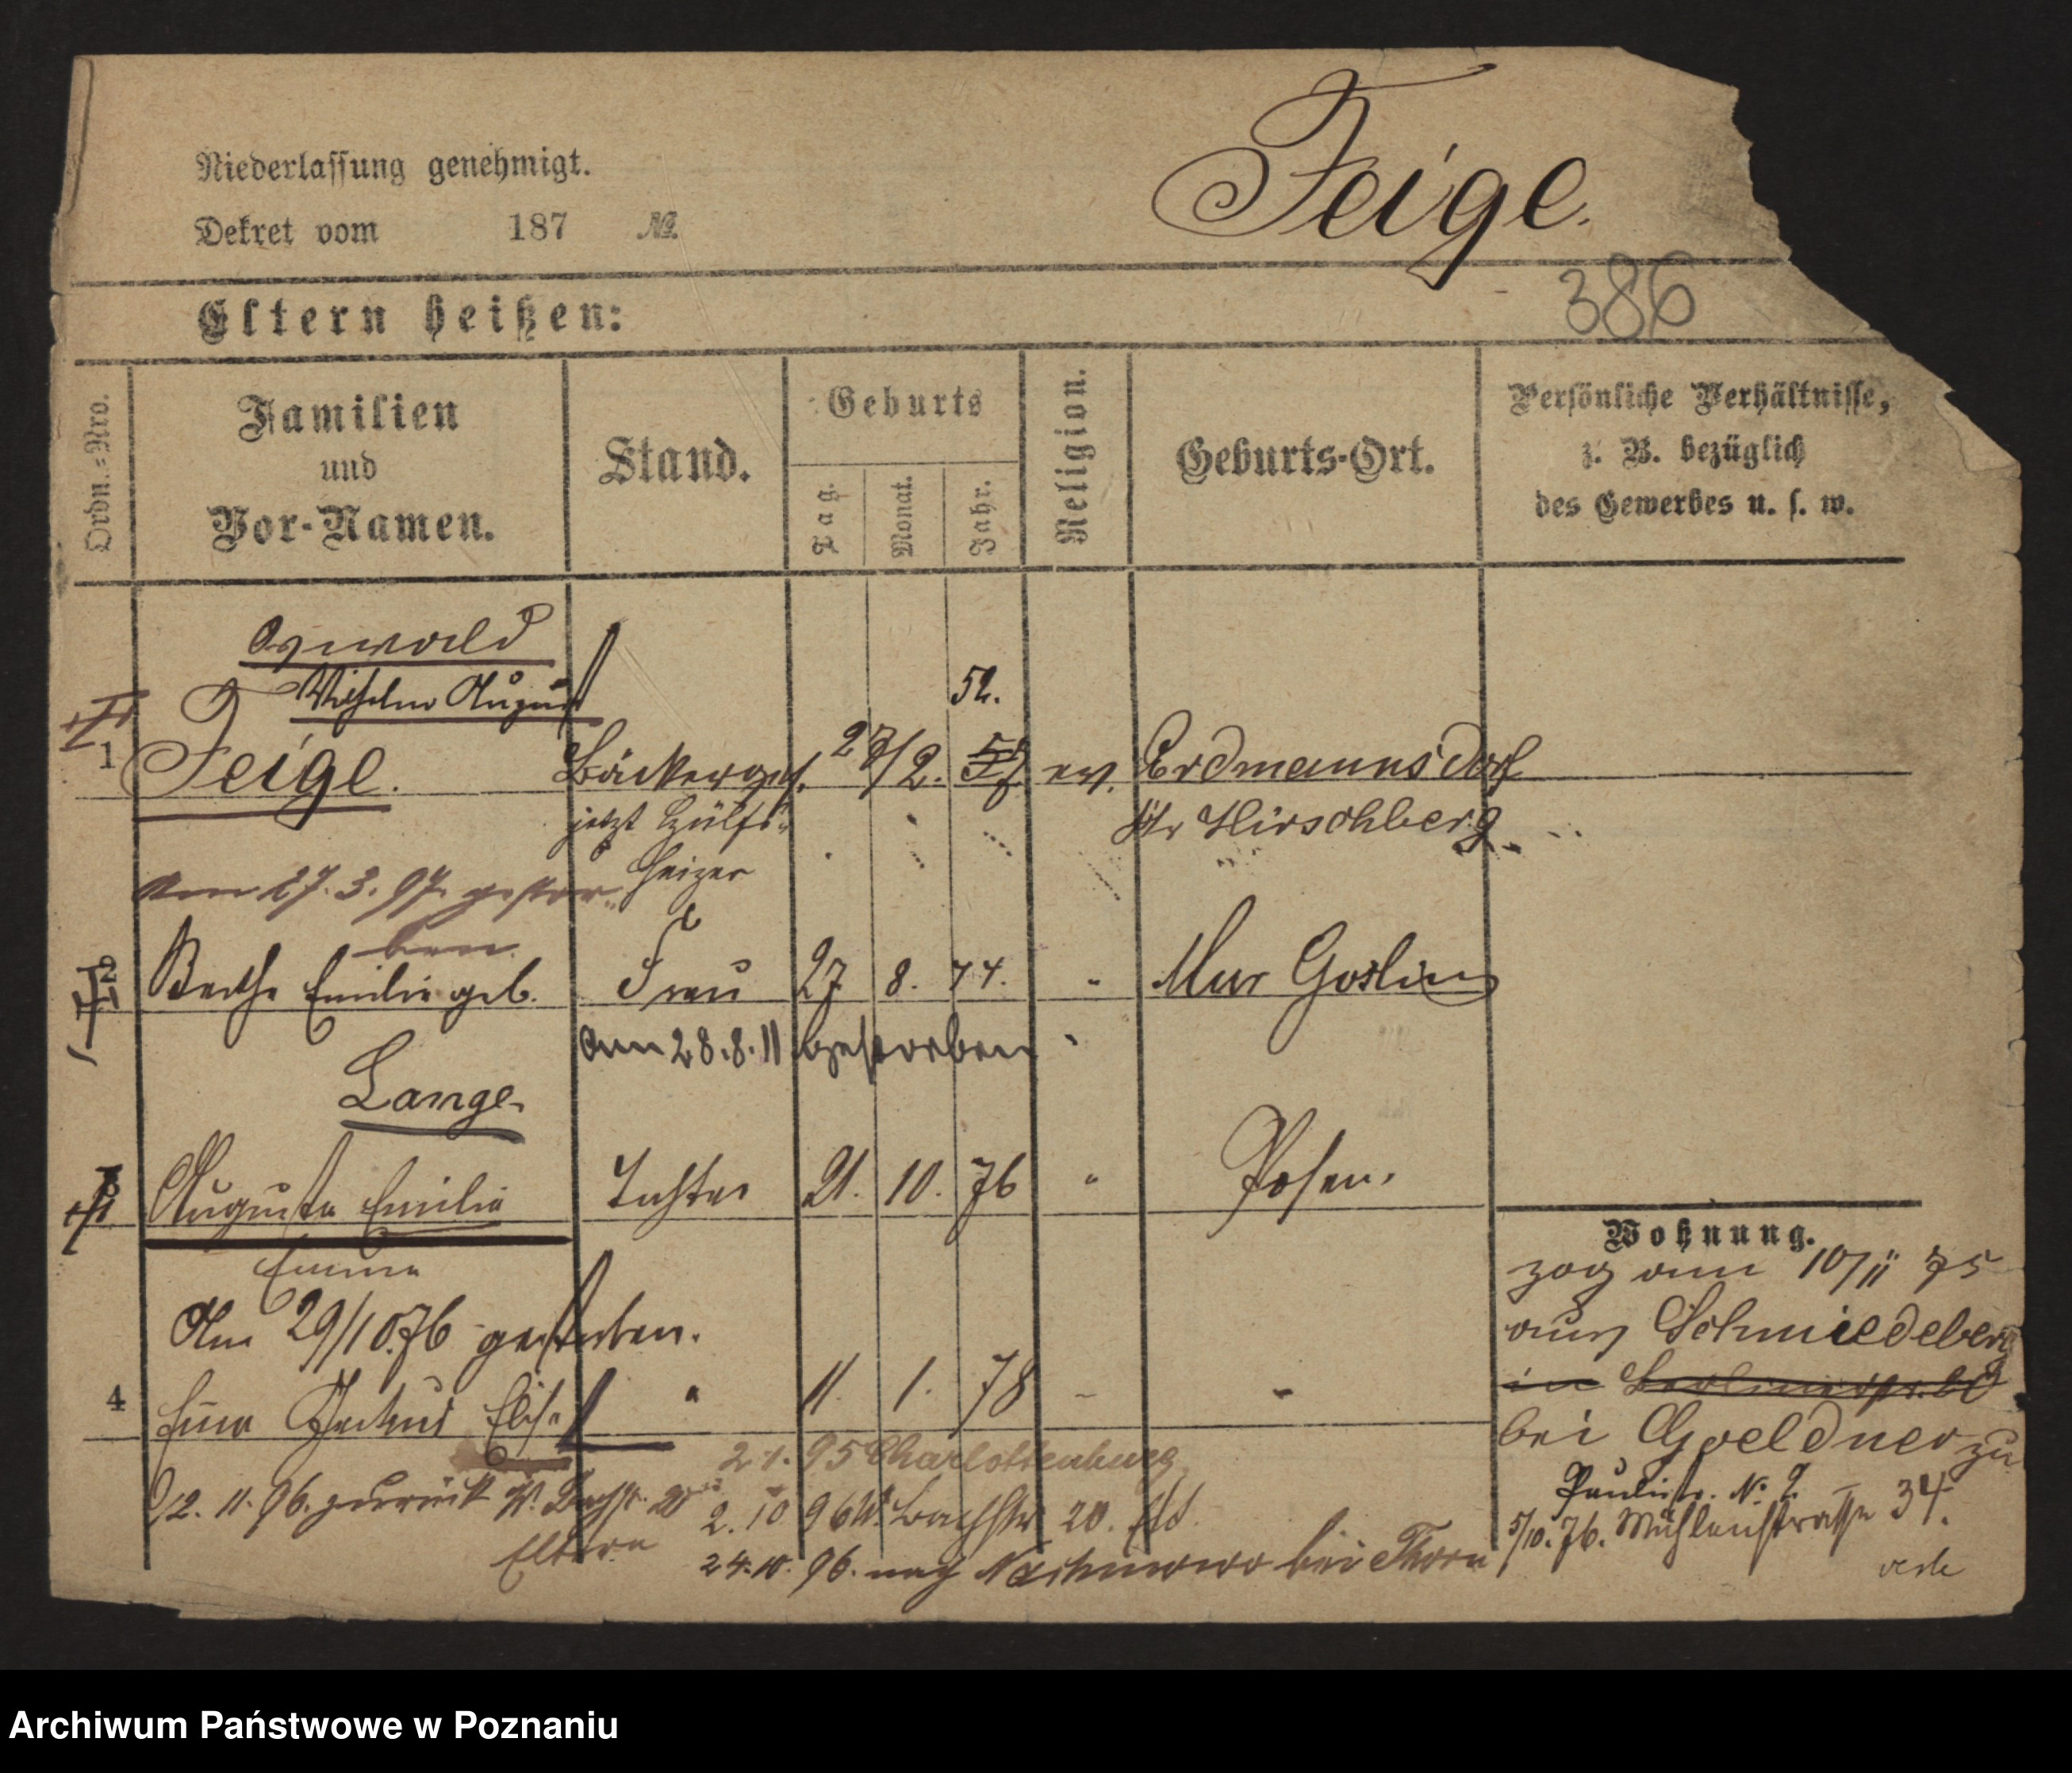 Niederlassung genehmigt.
Dekret vom 187 №.
Feige.
386
Eltern heißen:
Ordn.-Nro.
Familien
und
Vor-Namen.
Stand.
Geburts
Tag.
Monat.
Jahr.
Religion.
Geburts-Ort.
Persönliche Verhältnisse,
z. B. bezüglich
des Gewerbes u. s. w.
Oswald
Wilhelm August
52.
1 Feige. Bäckerges. 27/2. ev. Erdmannsdorf
jetzt Hülfs-
Kr Hirschberg
heizer
Am 27.3.97. gestor-
ben.
2 Bertha Emilie geb. Frau 27. 8. 74. " Mur Goslin
am 28.8.11 gestorben
Lange
3 Auguste Emilie Tochter 21. 10. 76 " Posen.
Emma
Am 29/10.76 gestorben.
4 Gertrud Elise " 11. 1. 78 - "
2 1. 95 Charlottenburg
12. 11. 96. zurück W. Bachstr. 20
Eltern
2. 10 96 W. Bachstr 20.
24.10. 96. nach bei Thorn
Wohnung.
zog am 10/11 75
aus Schmiedeberg
in Berlinerstr.
bei Goeldner zu
Paulistr. No 9.
5/10. 76. Mühlenstrasse 34.
Archiwum Państwowe w Poznaniu